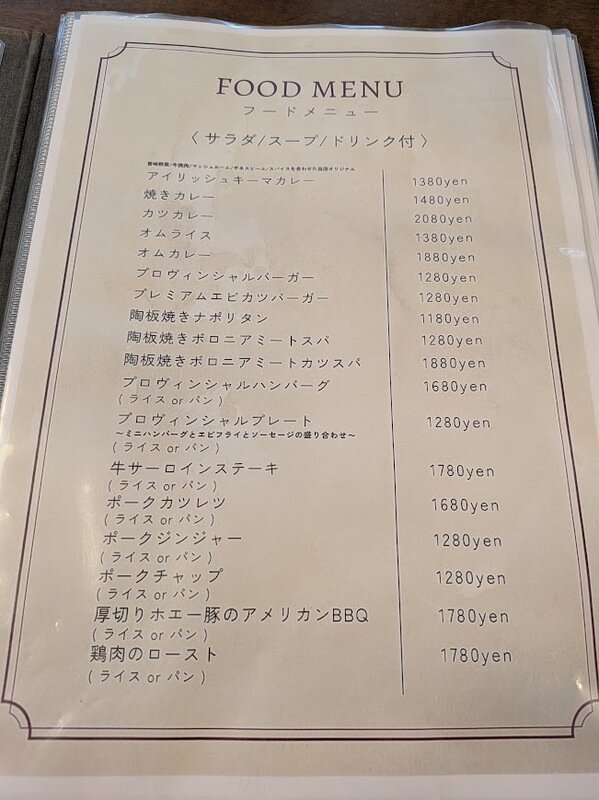 FOOD MENU
フードメニュー
〈 サラダ/スープ/ドリンク付 〉
香味野菜/牛挽肉/マッシュルーム/ギネスビール/スパイスを合わせた当店オリジナル
アイリッシュキーマカレー 1380yen
焼きカレー 1480yen
カツカレー 2080yen
オムライス 1380yen
オムカレー 1880yen
プロヴィンシャルバーガー 1280yen
プレミアムエビカツバーガー 1280yen
陶板焼きナポリタン 1180yen
陶板焼きボロニアミートスパ 1280yen
陶板焼きボロニアミートカツスパ 1880yen
プロヴィンシャルハンバーグ 1680yen
( ライス or パン )
プロヴィンシャルプレート 1280yen
〜ミニハンバーグとエビフライとソーセージの盛り合わせ〜
( ライス or パン )
牛サーロインステーキ 1780yen
( ライス or パン )
ポークカツレツ 1680yen
( ライス or パン )
ポークジンジャー 1280yen
( ライス or パン )
ポークチャップ 1280yen
( ライス or パン )
厚切りホエー豚のアメリカンBBQ 1780yen
( ライス or パン )
鶏肉のロースト 1780yen
( ライス or パン )